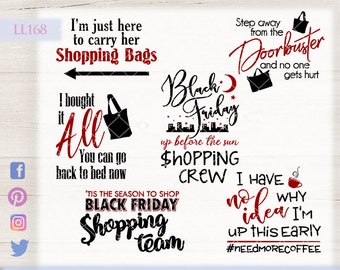 LL168
I'm just here
to carry her
Shopping Bags
Step away
from the
Doorbuster
and no one
gets hurt
I bought
it
All
You can go
back to bed now
Black
Friday
up before the sun
$hopping
CREW
'TIS THE SEASON TO SHOP
BLACK FRIDAY
Shopping
team
I HAVE
no WHY
idea I'm
UP THIS EARLY
#NEEDMORECOFFEE